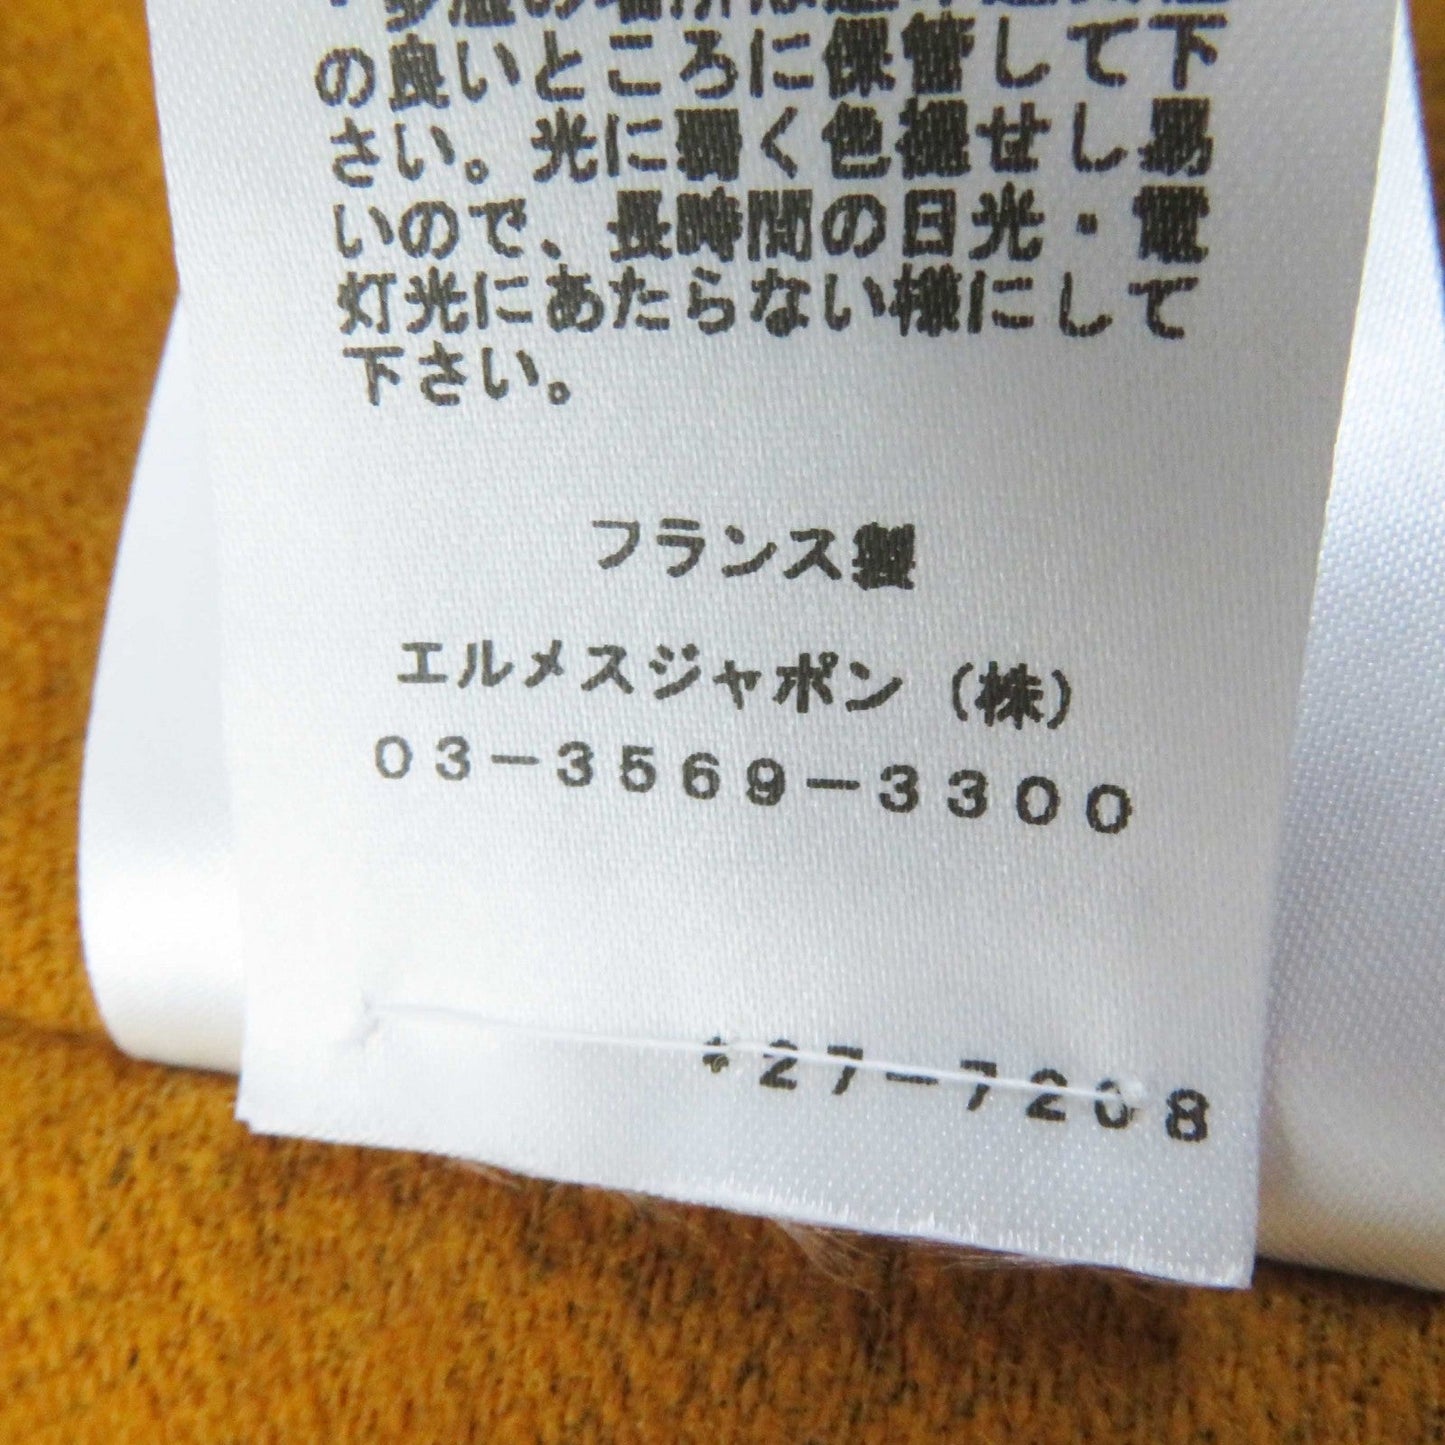 の良いところに保管して下
さい。光に弱く色褪せし易
いので、長時間の日光・電
灯光にあたらない様にして
下さい。
フランス製
エルメスジャポン（株）
０３－３５６９－３３００
*２７－７２０８